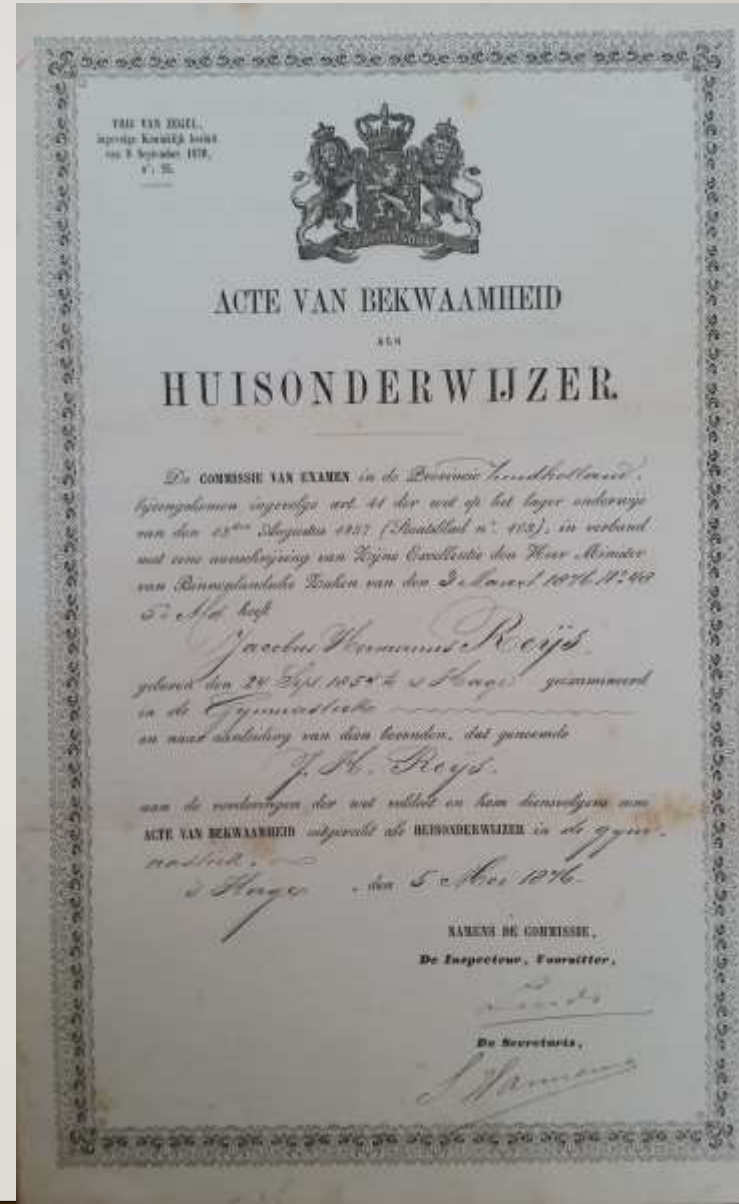 VRIJ VAN ZEGEL,
ingevolge Koninklijk besluit
van 9 September 1870,
n°. 25.
ACTE VAN BEKWAAMHEID
ALS
HUISONDERWIJZER.
De COMMISSIE VAN EXAMEN in de Provincie Zuidholland,
bijeengekomen ingevolge art. 41 der wet op het lager onderwijs
van den 13den Augustus 1857 (Staatsblad n°. 103), in verband
met eene aanschrijving van Zijne Excellentie den Heer Minister
van Binnenlandsche Zaken van den 3 Maart 1876 N° 49
5e Afd heeft
Jacobus Hermanus Reijs.
geboren den 24 Sept 1854 te 's Hage geëxamineerd
in de Gymnastiek
en naar aanleiding van dien bevonden, dat genoemde
J. H. Reijs.
aan de vorderingen der wet voldoet en hem dienvolgens eene
ACTE VAN BEKWAAMHEID uitgereikt als HUISONDERWIJZER in de gym-
nastiek.
's Hage, den 5 Mei 1876.
NAMENS DE COMMISSIE,
De Inspecteur, Voorzitter,
De Secretaris,